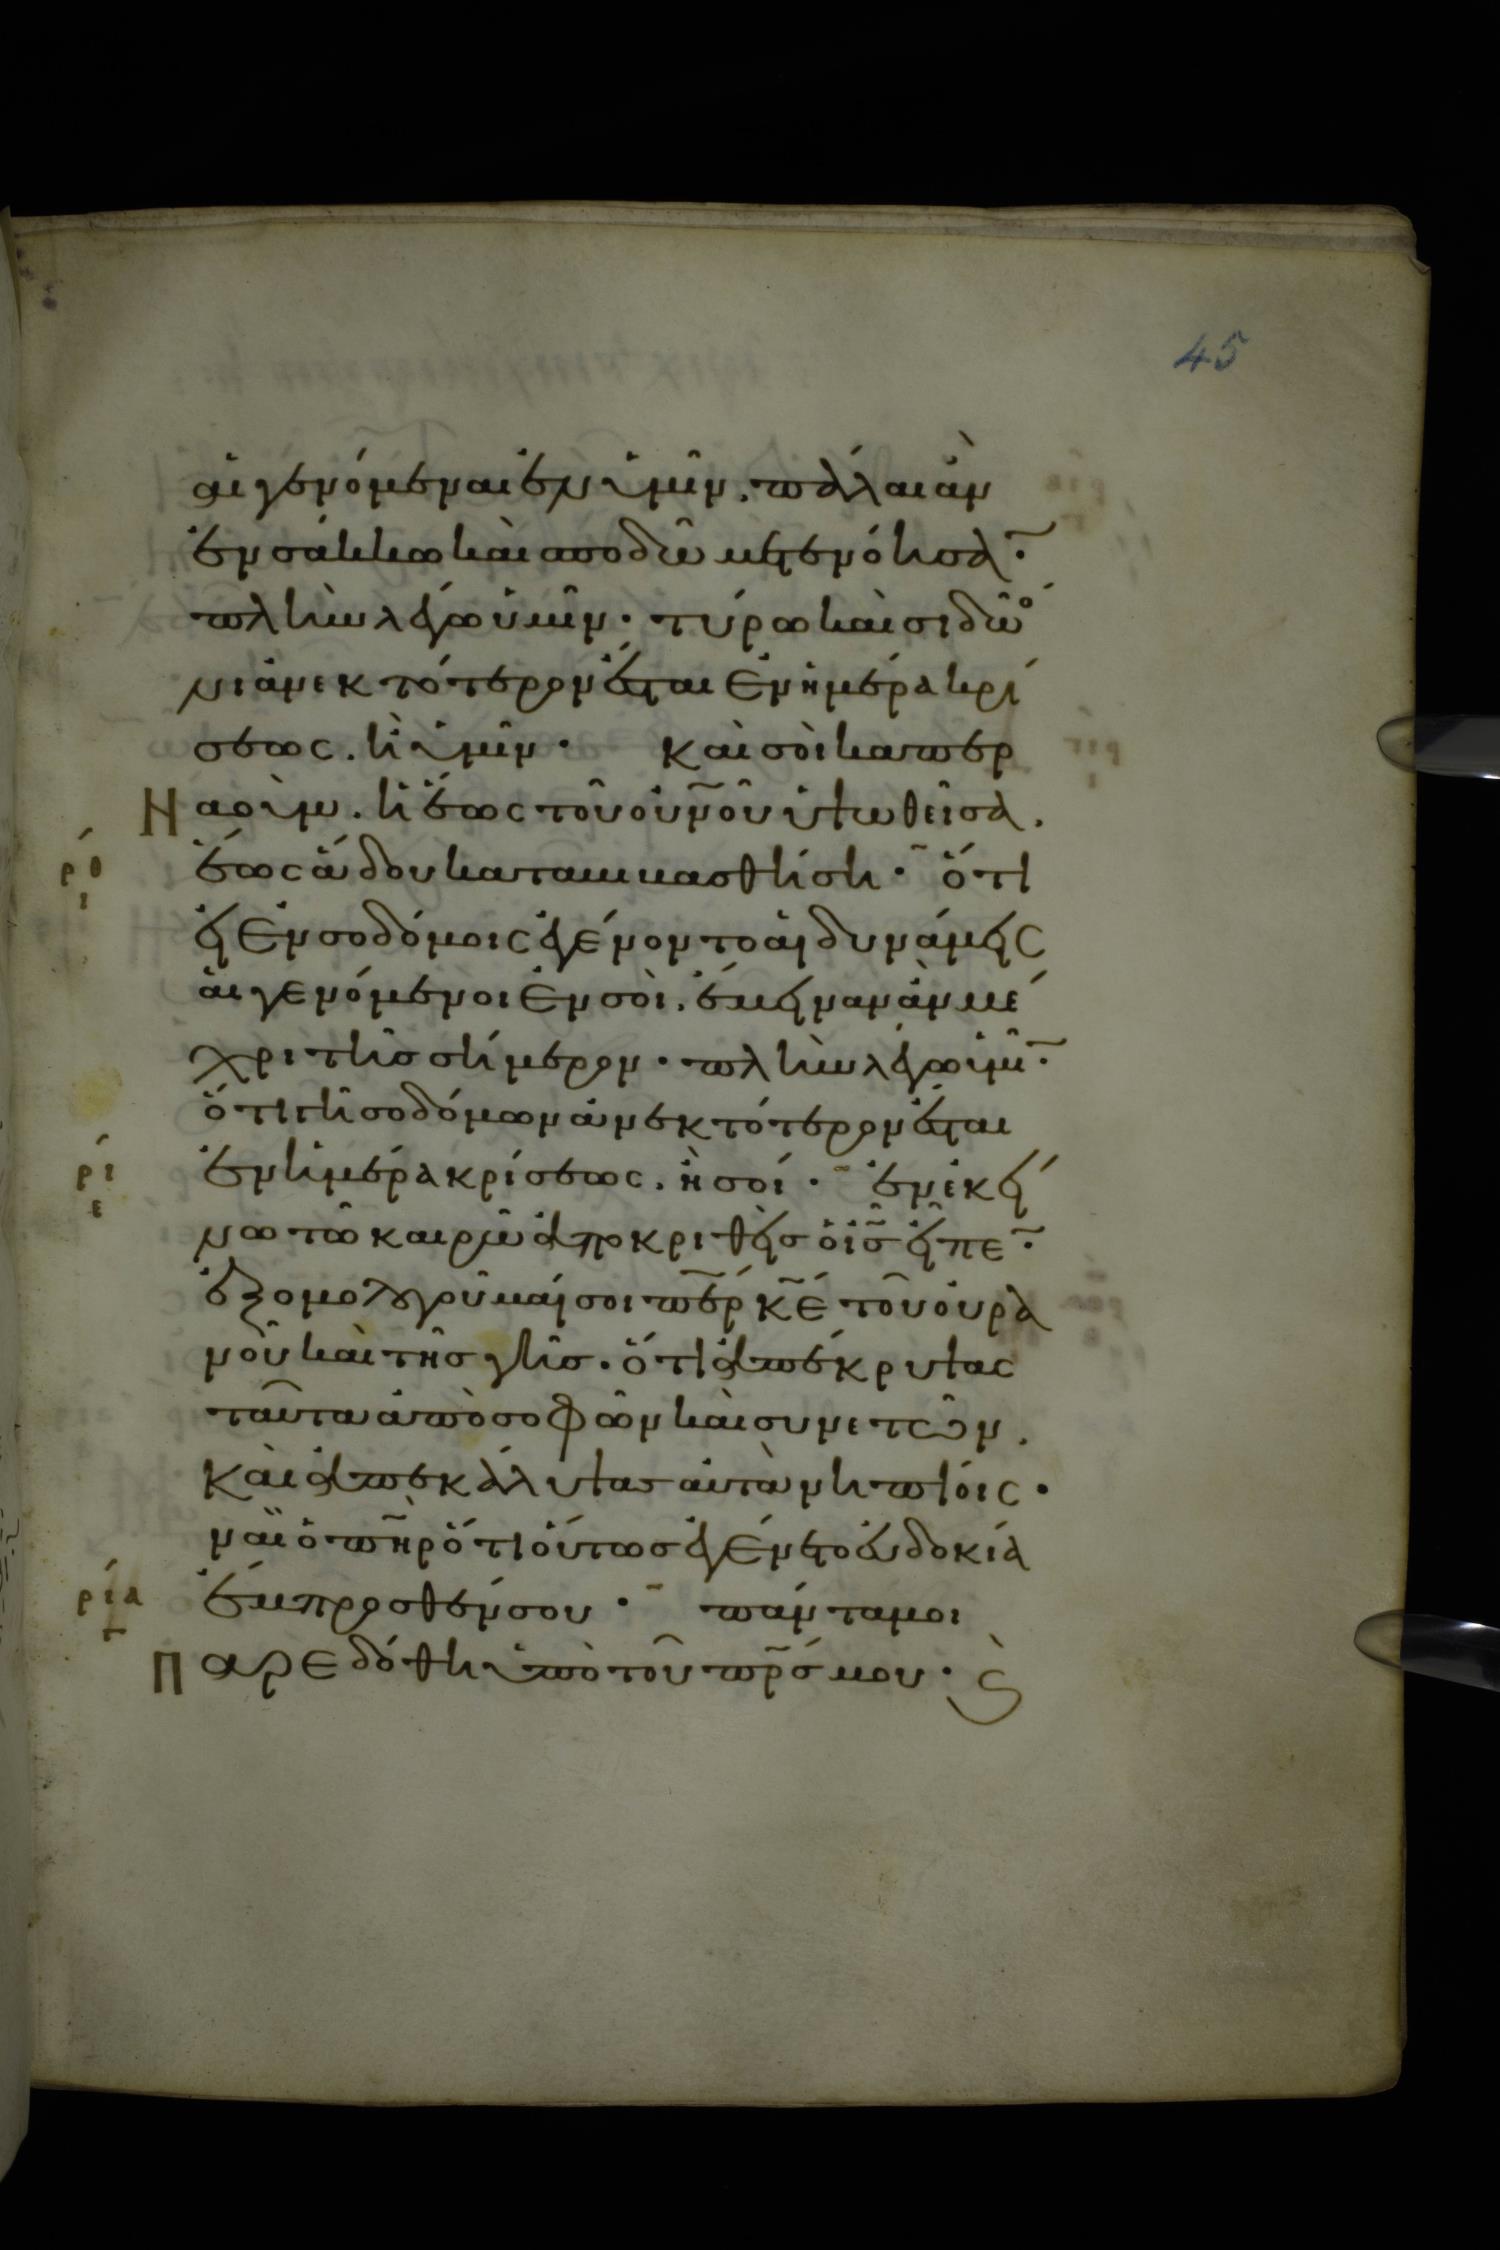 45
αἱ γενόμεναι ἐν ὑμῖν. πάλαι ἂν
ἐν σάκκω καὶ σποδῶ μετενόησα̃·
πλὴν λέγω ὑμῖν· τύρω καὶ σιδῶ
νι ἀνεκτότερον ἔσται ἐν ἡμέρα κρί
σεως. ἢ ὑμῖν· Καὶ σὺ καπερ
Ναούμ. ἡ ἕως τοῦ οὐν̅οῦ ὑψωθεῖσα.
ρθ
ι
ἕως ἅδου καταβιβασθήση· ὅτι
εἰ ἐν σοδόμοις ἐγένοντο αἱ δυνάμεις
αἱ γενόμενοι ἐν σοὶ. ἔμειναν ἂν μέ
χρι τῆς σήμερον· πλὴν λέγω ὑμῖ̃·
ὅτι γῆ σοδόμων ἀνεκτότερον ἔσται
ρι
ε
ἐν ἡμέρα κρίσεως. ἢ σοί· ἐν ἐκεί
νω τῶ καιρῶ ἀποκριθεὶς ὁ ἰ̅ς̅ εἶπε̃·
ἐξομολογοῦμαί σοι π̅ερ κ̅ε τοῦ οὐρα
νοῦ καὶ τῆς γῆς· ὅτι ἀπέκρυψας
ταῦτα ἀπὸ σοφῶν καὶ συνετῶν.
Καὶ ἀπεκάλυψας αὐτὰ νηπίοις·
ναὶ ὁ π̅ηρ ὅτι οὕτως ἐγένετο εὐδοκία
ρια
γ
ἔμπροσθέν σου· πάντα μοι
Παρεδόθη ὑπὸ τοῦ π̅ρς μου· ϗ